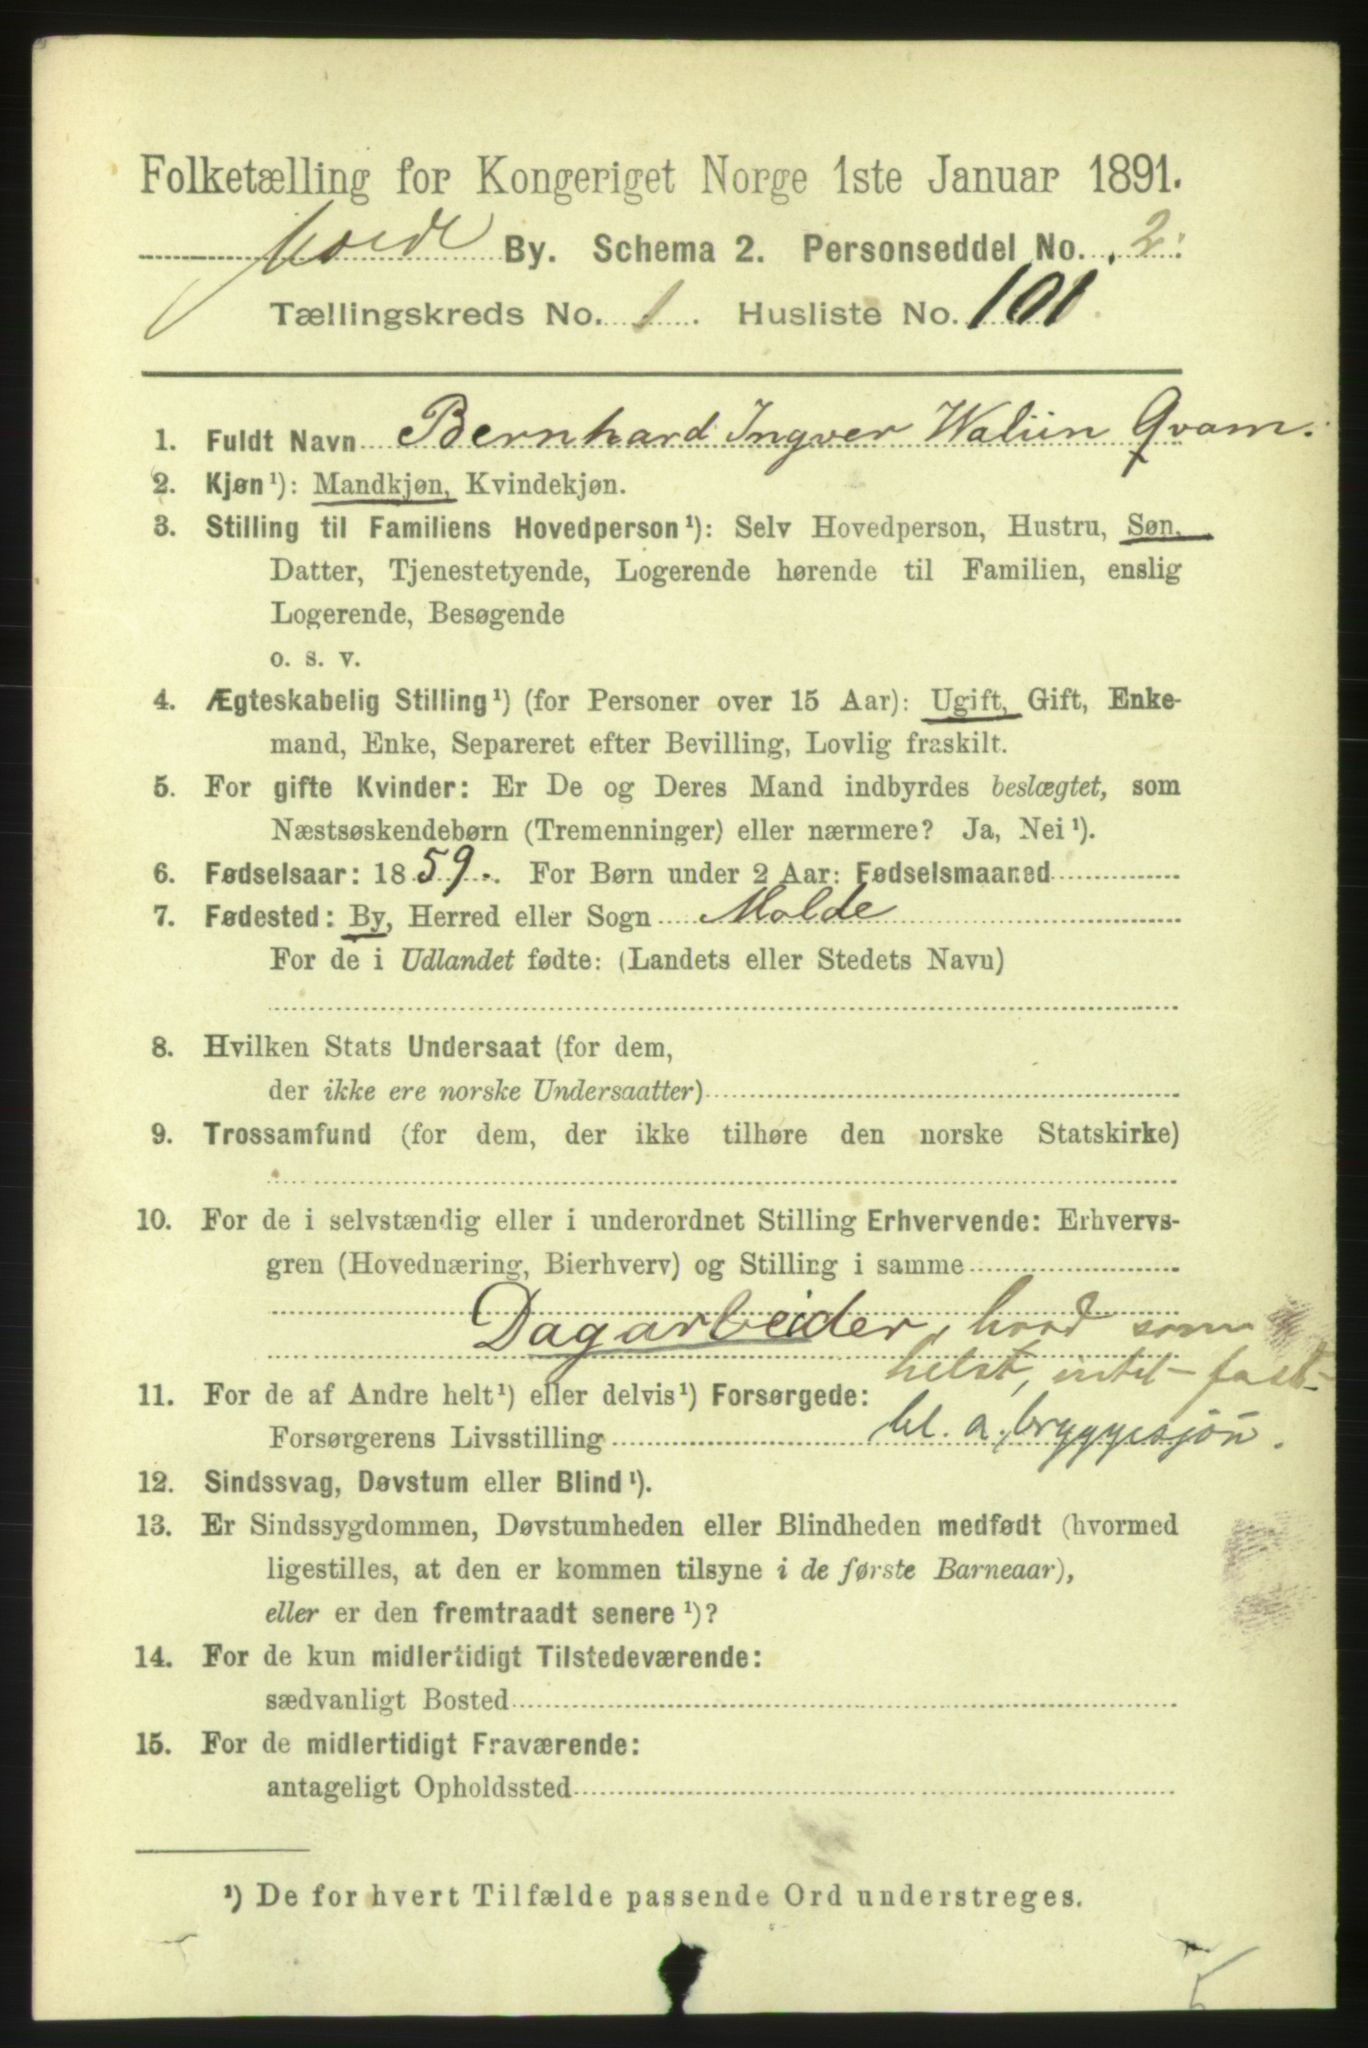 Folketælling for Kongeriget Norge 1ste Januar 1891.
Molde By. Schema 2. Personseddel No. 2.
Tællingskreds No. 1. Husliste No. 101.
1. Fuldt Navn Bernhard Ingver Waliin Qvam.
2. Kjøn¹): Mandkjøn, Kvindekjøn.
3. Stilling til Familiens Hovedperson¹): Selv Hovedperson, Hustru, Søn,
Datter, Tjenestetyende, Logerende hørende til Familien, enslig
Logerende, Besøgende
o. s. v.
4. Ægteskabelig Stilling¹) (for Personer over 15 Aar): Ugift, Gift, Enke-
mand, Enke, Separeret efter Bevilling, Lovlig fraskilt.
5. For gifte Kvinder: Er De og Deres Mand indbyrdes beslægtet, som
Næstsøskendebørn (Tremenninger) eller nærmere? Ja, Nei¹).
6. Fødselsaar: 1859. For Børn under 2 Aar: Fødselsmaaned
7. Fødested: By, Herred eller Sogn Molde
For de i Udlandet fødte: (Landets eller Stedets Navn)
8. Hvilken Stats Undersaat (for dem,
der ikke ere norske Undersaatter)
9. Trossamfund (for dem, der ikke tilhøre den norske Statskirke)
10. For de i selvstændig eller i underordnet Stilling Erhvervende: Erhvervs-
gren (Hovednæring, Bierhverv) og Stilling i samme
Dagarbeider, hvad som
helst, intet fast
11. For de af Andre helt¹) eller delvis¹) Forsørgede:
Forsørgerens Livsstilling bl. a. bryggesjøu.
12. Sindssvag, Døvstum eller Blind¹).
13. Er Sindssygdommen, Døvstumheden eller Blindheden medfødt (hvormed
ligestilles, at den er kommen tilsyne i de første Barneaar),
eller er den fremtraadt senere¹)?
14. For de kun midlertidigt Tilstedeværende:
sædvanligt Bosted
15. For de midlertidigt Fraværende:
antageligt Opholdssted
¹) De for hvert Tilfælde passende Ord understreges.
5